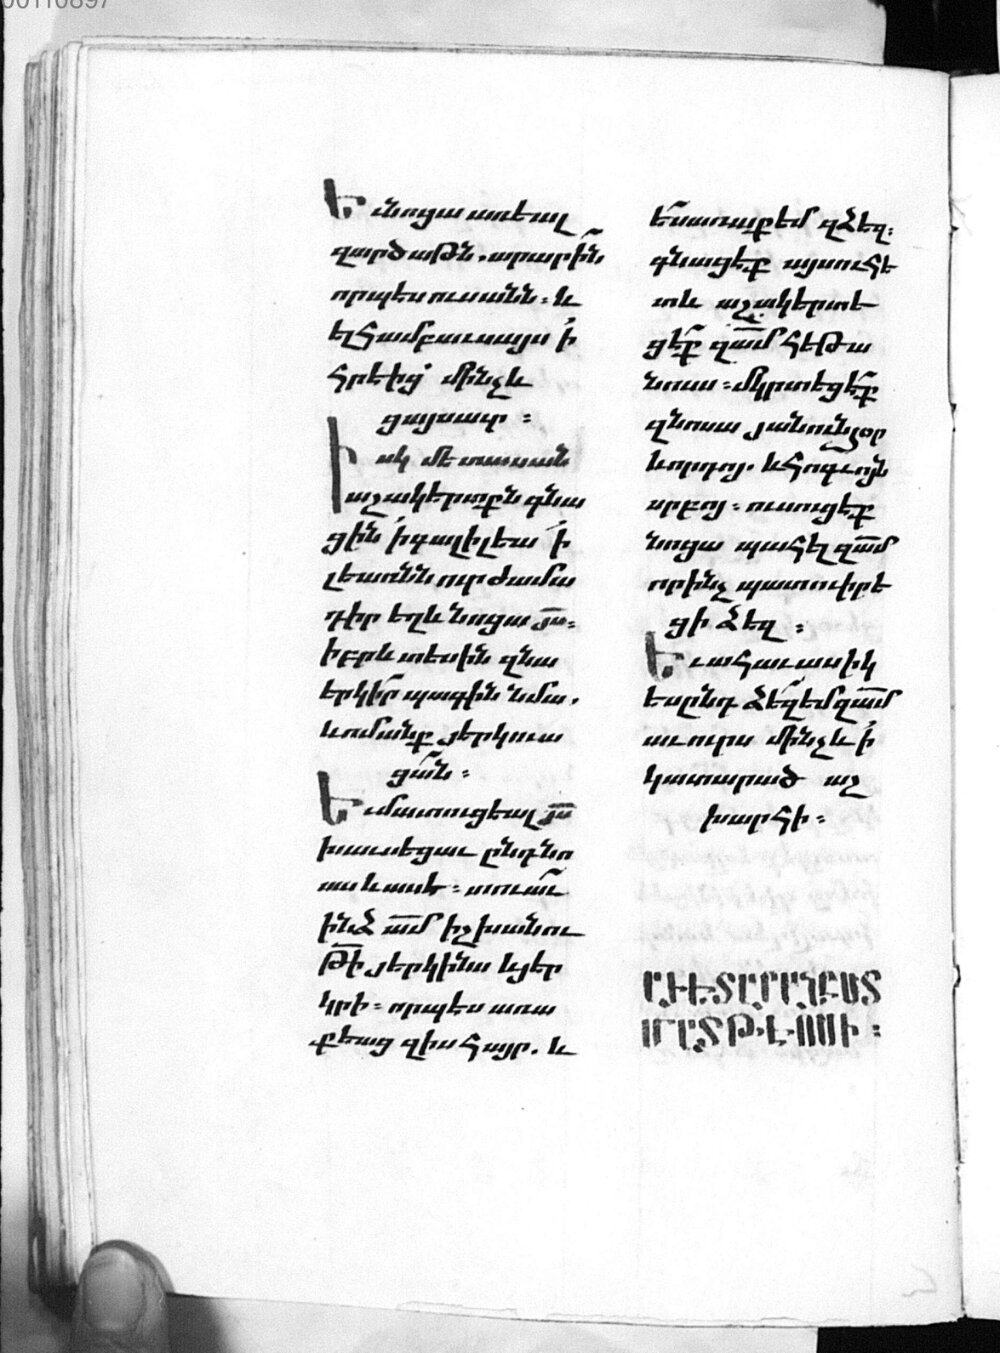 00110897
Ե նոցա առեալ
զարծաթն. արարին
որպես ուսանն : և
ել համբաւս այս ի
հրեից մինչև
ցայսաւր :
Իսկ մետասան
աշակերտքն գնա
ցին ի գալիլեա ի
լեառնն ուր ժամա
դիր եղև նոցա յս :
իբրև տեսին զնա
երկիր պագին նմա .
ևոմանք յերկուա
ցան :
Եւ մատուցեալ յս
խաւսեցաւ ընդ նո
սա և ասե : տուաւ
ինձ ամ իշխանու
թի յերկինս և յեր
կրի : որպես առա
քեաց զիս հայր . և
ես առաքեմ զձեզ :
գնացեք այսուհե
տև աշակերտե
ցեք զամ հեթա
նոսս : մկրտեցեք
զնոսա յանուն հօր
և որդոյ . և հոգւոյն
սրբոյ : ուսուցեք
նոցա պահել զամ
որինչ պատուիրե
ցի ձեզ :
Եւ ահաւասիկ
ես ընդ ձեզ եմ զամ
աւուրս մինչև ի
կատարած աշ
խարհի :
ԱՒԵՏԱՐԱՆ ԸՍՏ
ՄԱՏԹԷՈՍԻ :